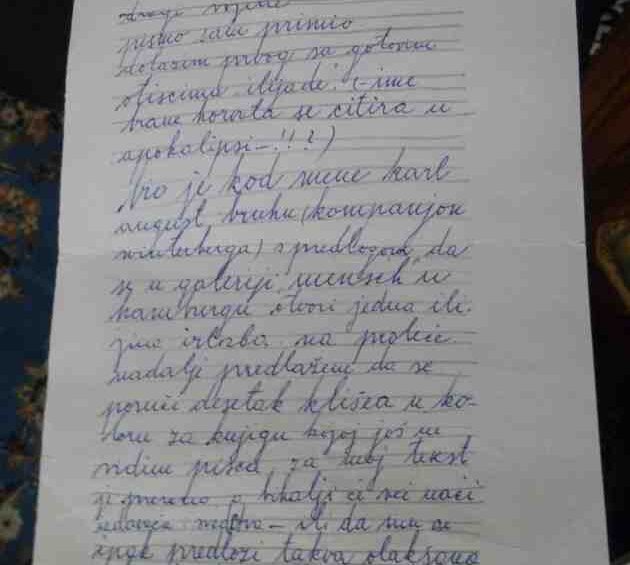 pismo sam primio
dolazim prvog sa gotovim
otiscima ilijade! (-ime
brane horata se citira u
apokalipsi-!!?)
bio je kod mene karl
august bruhn (kompanjon
winterberga) s predlogom da
se u galeriji mensch u
hamburgu otvori jedna ili.
izložba na proleće
nadalje predlažem da se
poruči desetak klišea u ko-
loru za knjigu kojoj još ne
vidim pisca, za moj tekst
je a bihalji će reći naći
- ili da mu se
ipak predloži takva olakšana